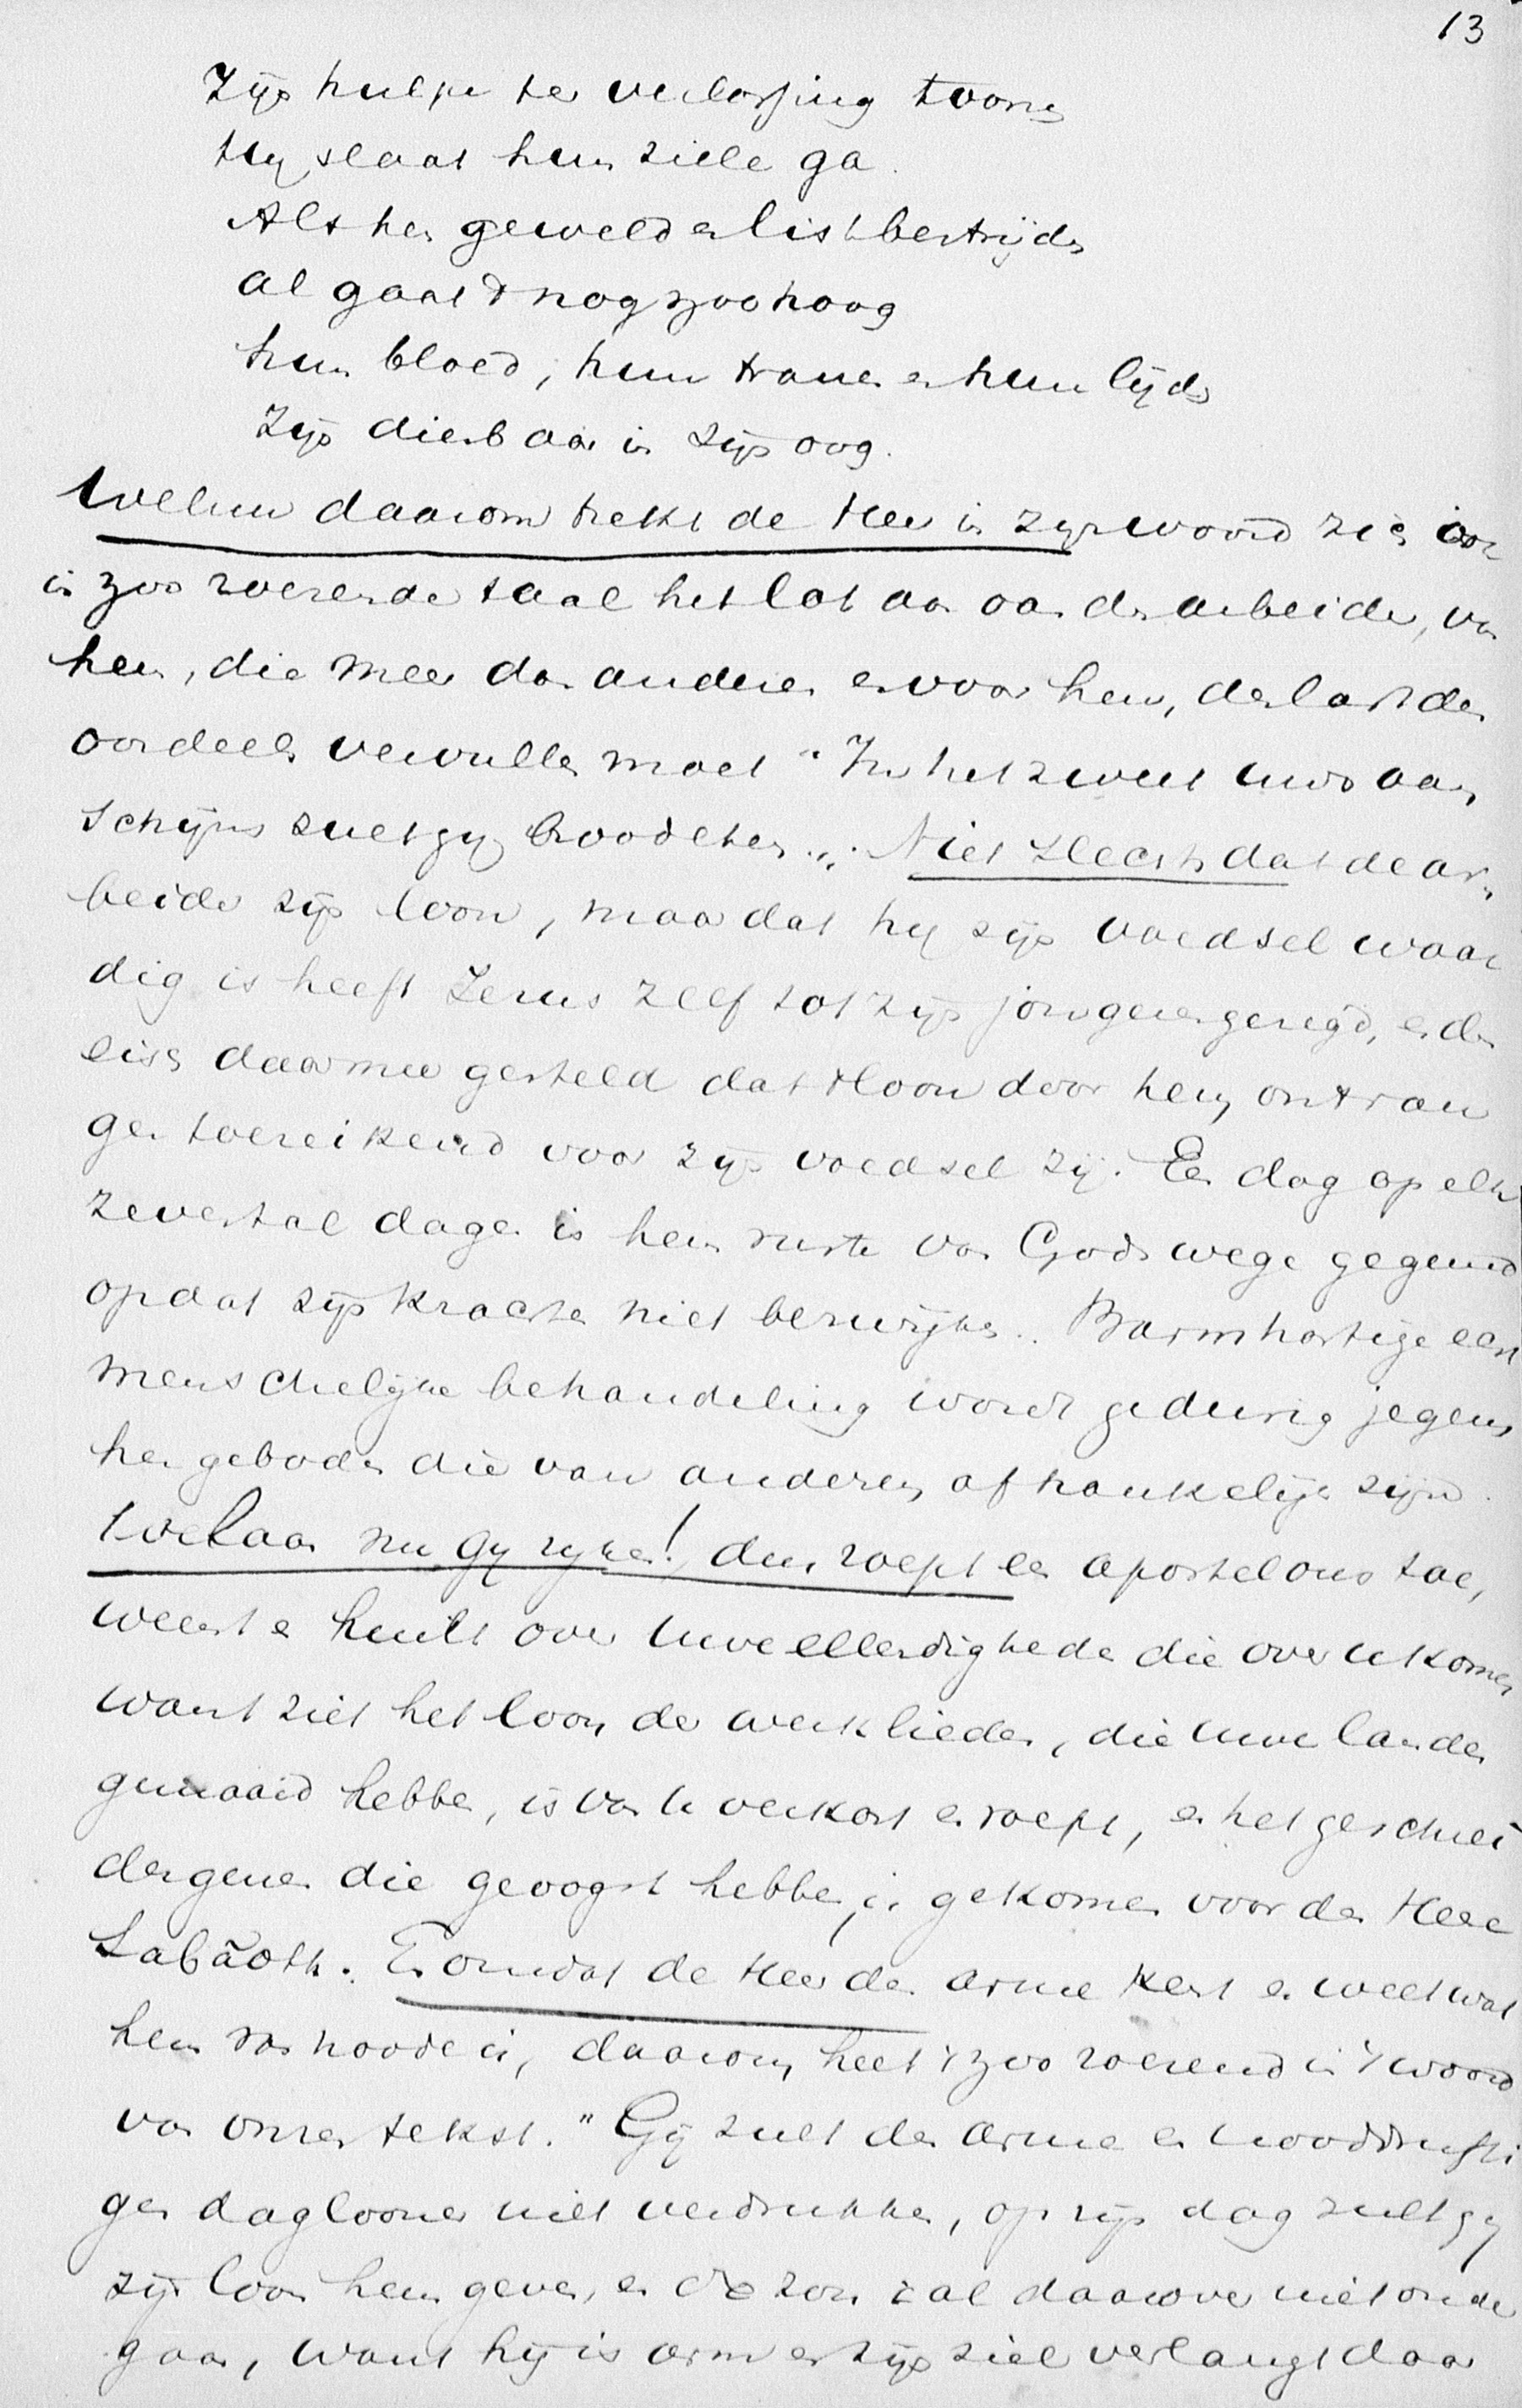 13
Zijn hulpe ter verlossing toonen
Hij slaat hun ziele ga.
Als hen geweld en list bestrijden
al gaat 't nog zoo hoog
hun bloed, hun tranen en hun lijden
Zijn dierbaar in zijn oog.
Welnu daarom trekt de Heer in zijn woord zich ook
in zoo roerende taal het lot aan van den arbeider, van
hen, die meer dan anderen en voor hen, den last des
oordeels vervullen moet "In het zweet uws aan
schijns zult gij brood eten". Niet slechts dat de ar-
beider zijn loon, maar dat hij zijn voedsel waar
dig is heeft Jezus zelf tot zijn jongeren gezegd, en den
eisch daarmee gesteld dat 't loon door hem ontvan
gen toereikend voor zijn voedsel zij. Een dag op elk
zevental dagen is hem ruste van Gods wege gegund
opdat zijn krachten niet bezwijken. Barmhartige en
menschelijke behandeling wordt gedurig jegens
hen geboden die van anderen afhankelijk zijn.
Welaan nu gij rijken! dus roept een apostel ons toe,
weent en huilt over uwe ellendigheden die over u komen
want ziet het loon der werklieden, die uwe landen
gemaaid hebben, is van u verkort en roept, en het geschrei
dergenen die geoogst hebben, is gekomen voor den Heere
Sabãoth. En omdat de Heer den arme kent en weet wat
hem van noode is, daarom heet 't zoo roerend in 't woord
van onzen tekst. "Gij zult den arme en nooddrufti
gen daglooner niet verdrukken, op zijn dag zult gij
zijn loon hem geven, en de zon zal daarover niet onder
gaan, want hij is arm en zijn ziel verlangt daar